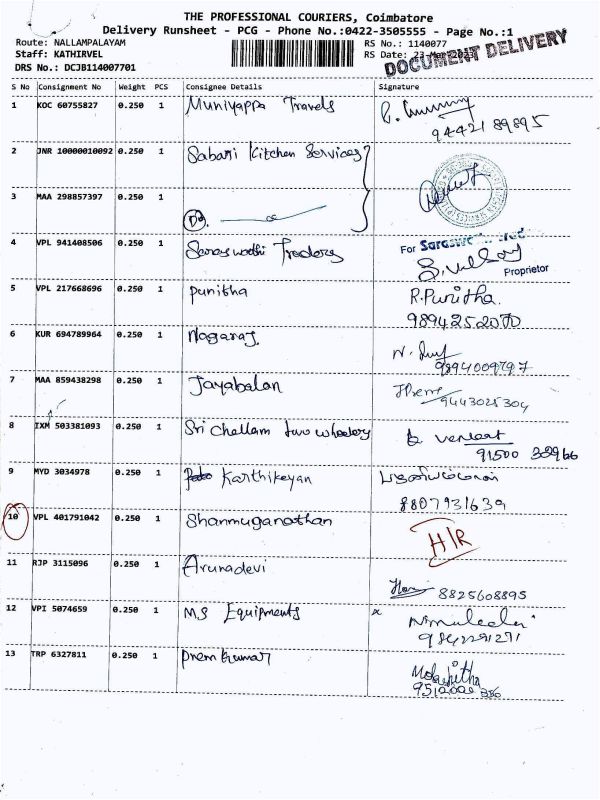 THE PROFESSIONAL COURIERS, Coimbatore
Delivery Runsheet - PCG - Phone No.:0422-3505555 - Page No.:1
Route: NALLAMPALAYAM RS No.: 1140077
Staff: KATHIRVEL RS Date: 23-Mar-2023
DRS No.: DCJB114007701 DOCUMENT DELIVERY
S No Consignment No Weight PCS Consignee Details Signature
1 KOC 60755827 0.250 1 Muniyappa Travels
94421 89895
2 JNR 10000010092 0.250 1 Sabari Kitchen Services
3 MAA 298857397 0.250 1
4 VPL 941408506 0.250 1 Saraswathi Traders
For
Proprietor
5 VPL 217668696 0.250 1 Punitha R.Punitha.
9894252070
6 KUR 694789964 0.250 1 Nagaraj.
9894009797
7 MAA 859438298 0.250 1 Jayabalan
9443025304
8 IXM 503381093 0.250 1 Sri Chellam two wheelers venkat
91500
9 MYD 3034978 0.250 1 Karthikeyan
8807931639
10 VPL 401791042 0.250 1 Shanmuganathan H/R
11 RJP 3115096 0.250 1 Arunadevi
8825608895
12 VPI 5074659 0.250 1 MS Equipments
13 TRP 6327811 0.250 1 Prem kumar